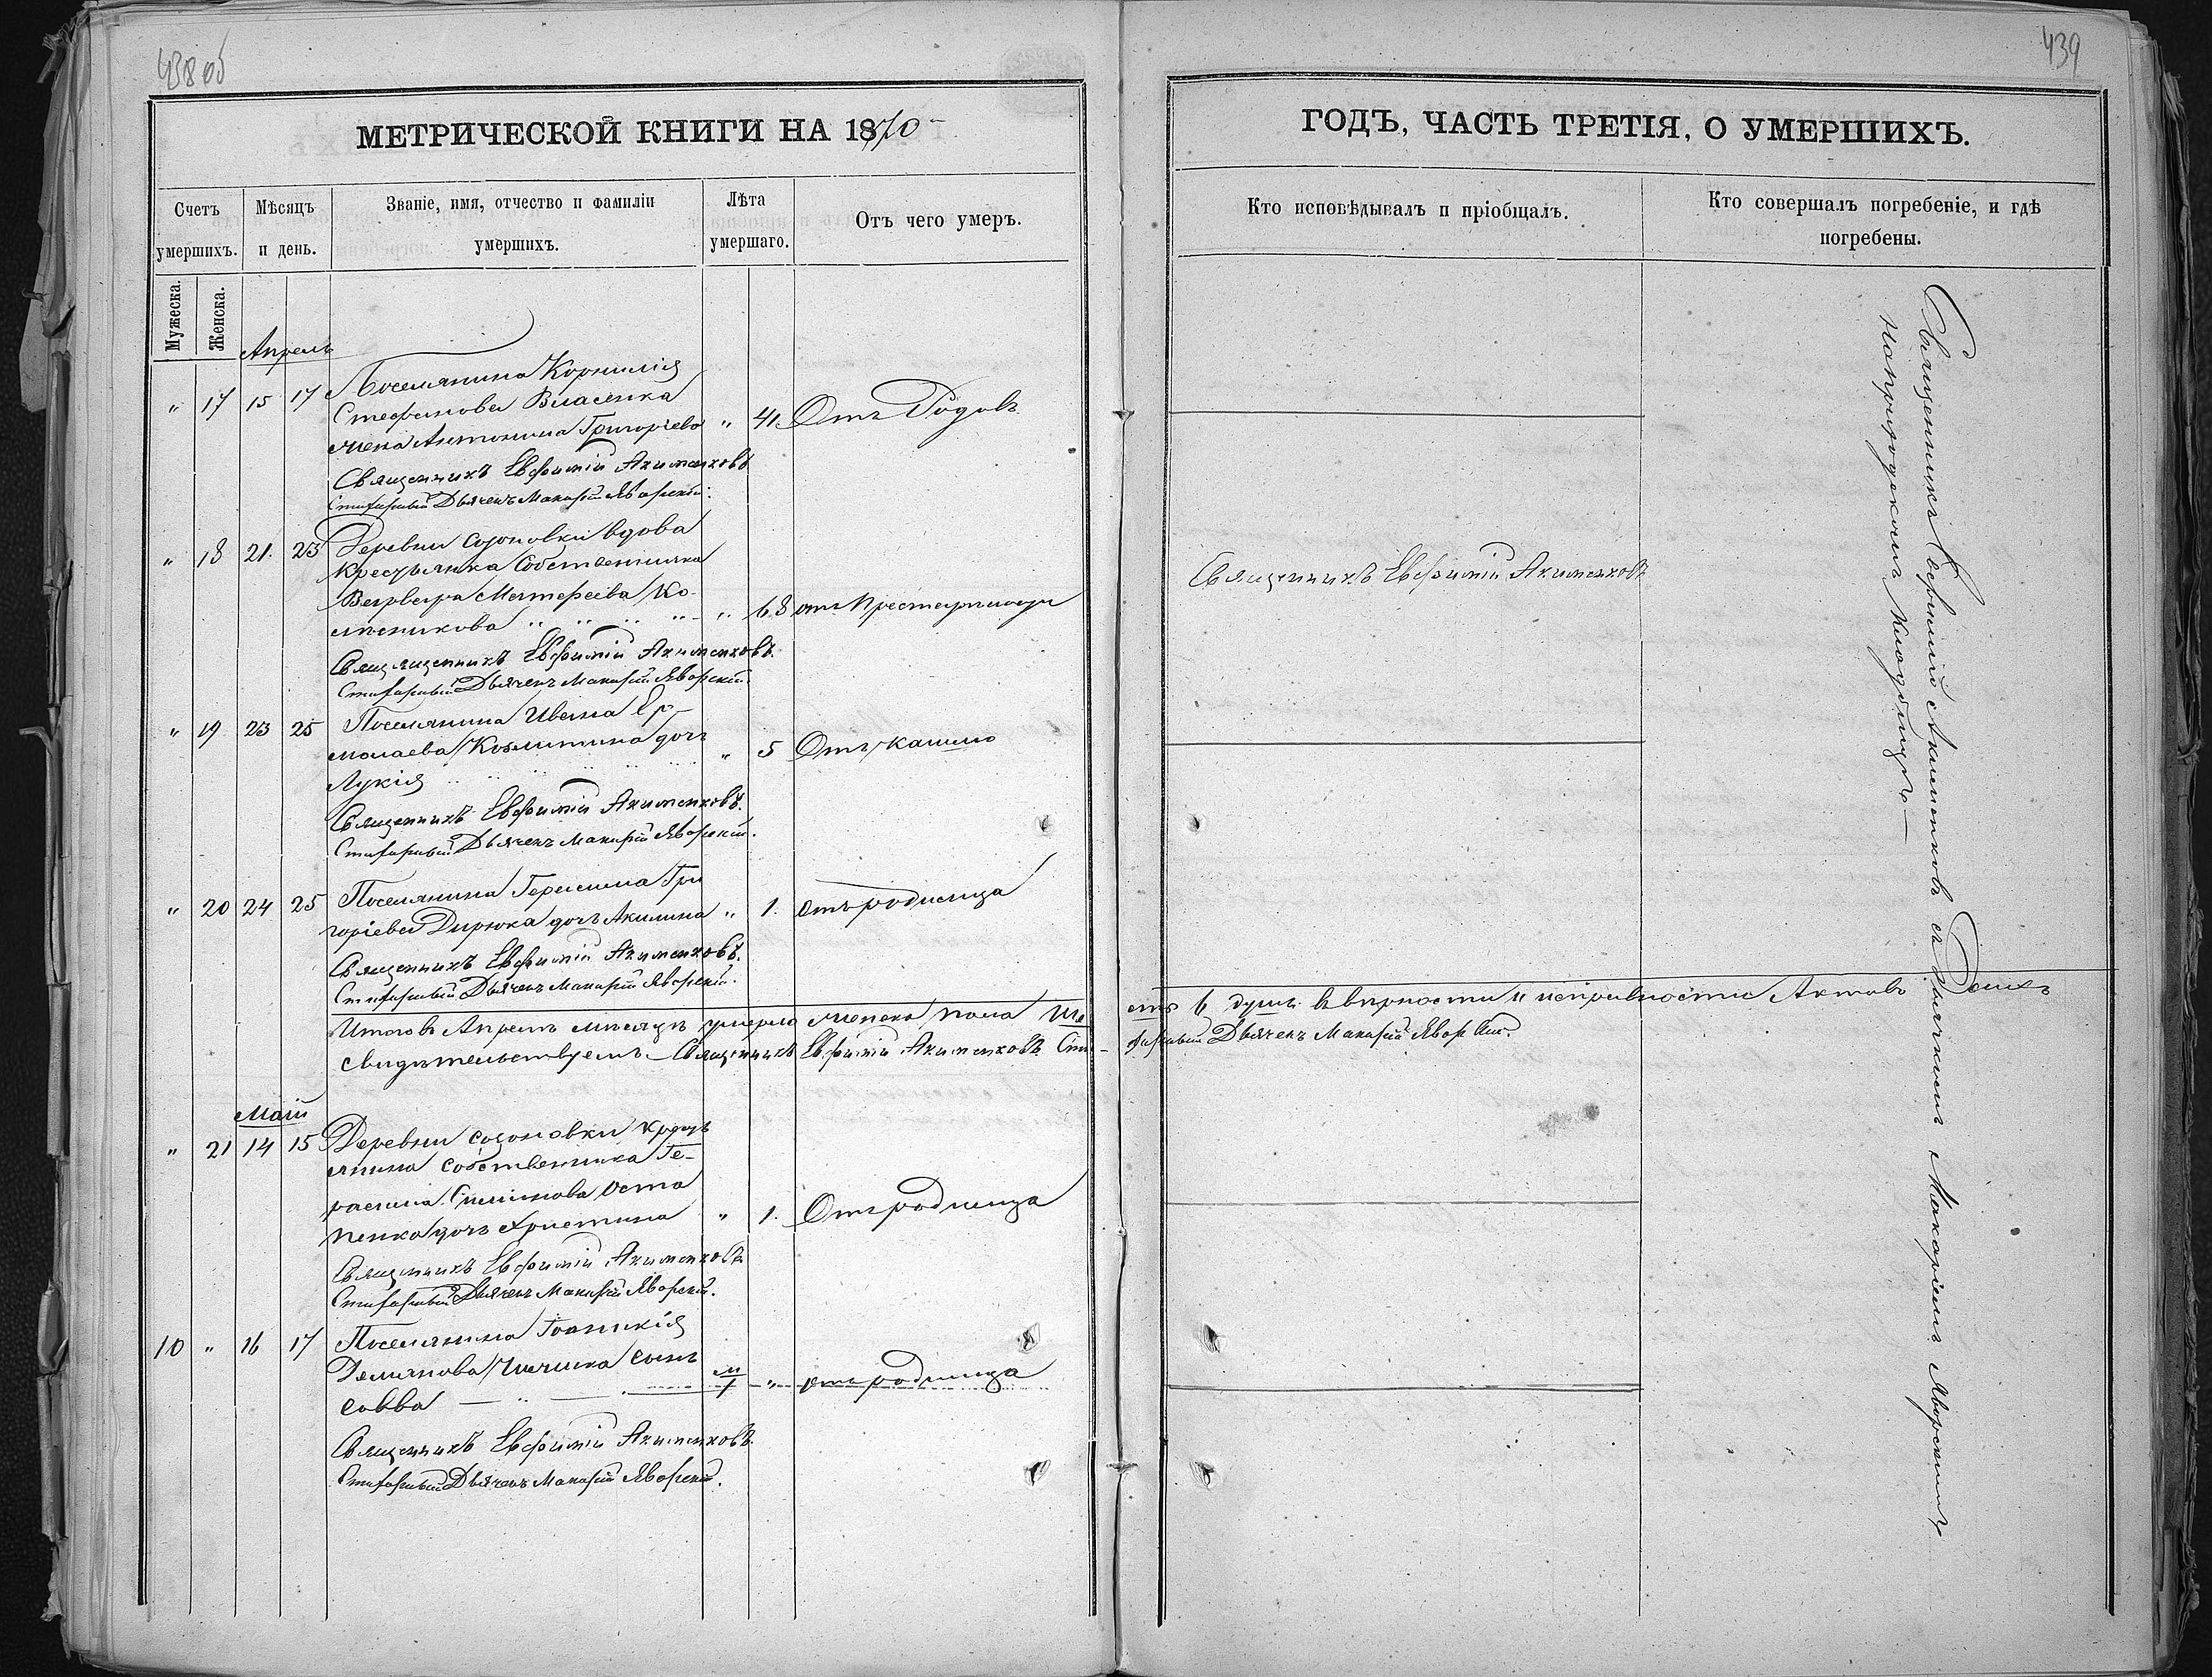 438 об
439
МЕТРИЧЕСКОЙ КНИГИ НА 1870
ГОДЪ, ЧАСТЬ ТРЕТІЯ, О УМЕРШИХЪ.
Счетъ умершихъ.
Мѣсяцъ и день.
Званіе, имя, отчество и фамиліи умершихъ.
Лѣта умершаго.
Отъ чего умеръ.
Кто исповѣдывалъ и пріобщалъ.
Кто совершалъ погребеніе, и гдѣ погребены.
Мужеска.
Женска.
Апрель
" 17 15 17 Поселянина Корнилія
Стефанова Власенка
жена Антонина Григорьева " 41. Отъ Родовъ
Священникъ Евфимій Акименковъ
Стихарный Дьячекъ Макарій Яворскій.
" 18 21. 23 Деревни Созоновки вдова
Крестьянка Собственника
Варвара Матфеева Ко-
лесникова " 68 отъ престарелости
Священникъ Евфимій Акименковъ.
Стихарный Дьячекъ Макарій Яворскій.
Священникъ Евфимій Акименковъ
" 19 23 25 Поселянина Ивана Ер-
молаева дочь
Лукія " 5 Отъ кашлю
Священникъ Евфимій Акименковъ.
Стихарный Дьячекъ Макарій Яворскій.
" 20 24 25 Поселянина Герасима Гри
горіева Дирюка дочь Акилина " 1. отъ родимца
Священникъ Евфимій Акименковъ.
Стихарный Дьячекъ Макарій Яворскій.
Итого въ Апрелѣ месяцѣ умерло женска пола Ше
сть 6 душъ. Въ верности и исправности Актовъ
свидѣтельствуемъ. Священникъ Евфимій Акименковъ Сти-
харный Дьячекъ Макарій Яворскій.
Маій
" 21 14 15 Деревни Созоновки Кресть
янина Собственника Ге-
расима Оста
пенка дочь Христина " 1. Отъ родимца
Священникъ Евфимій Акименковъ
Стихарный Дьячекъ Макарій Яворскій.
10 " 16 17 Поселянина Іоаникія
Демянова сынъ
Савва м/1 " отъ родимца
Священникъ Евфимій Акименковъ.
Стихарный Дьячекъ Макарій Яворскій.
Священникъ Евфимій Акименковъ съ Дьячкомъ Макаріемъ Яворскимъ
на приходскомъ Кладбищѣ —